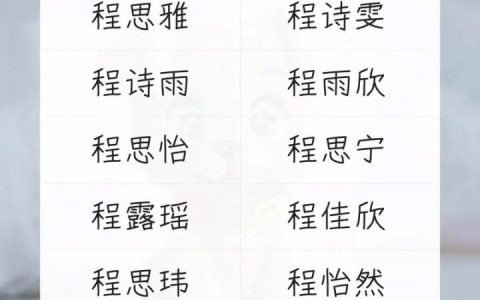 程思雅 程诗雯
程诗雨 程雨欣
程思怡 程思宁
程露瑶 程佳欣
程思玮 程怡然